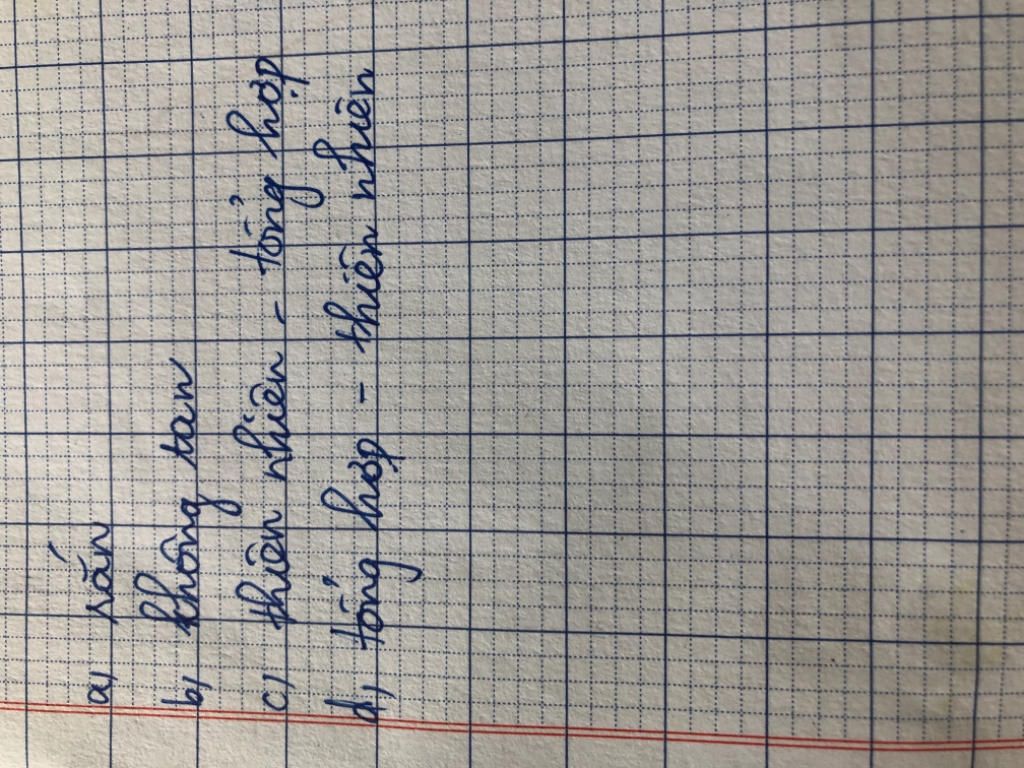 a) rắn
b) không tan
c) thiên nhiên - tổng hợp
d) tổng hợp - thiên nhiên